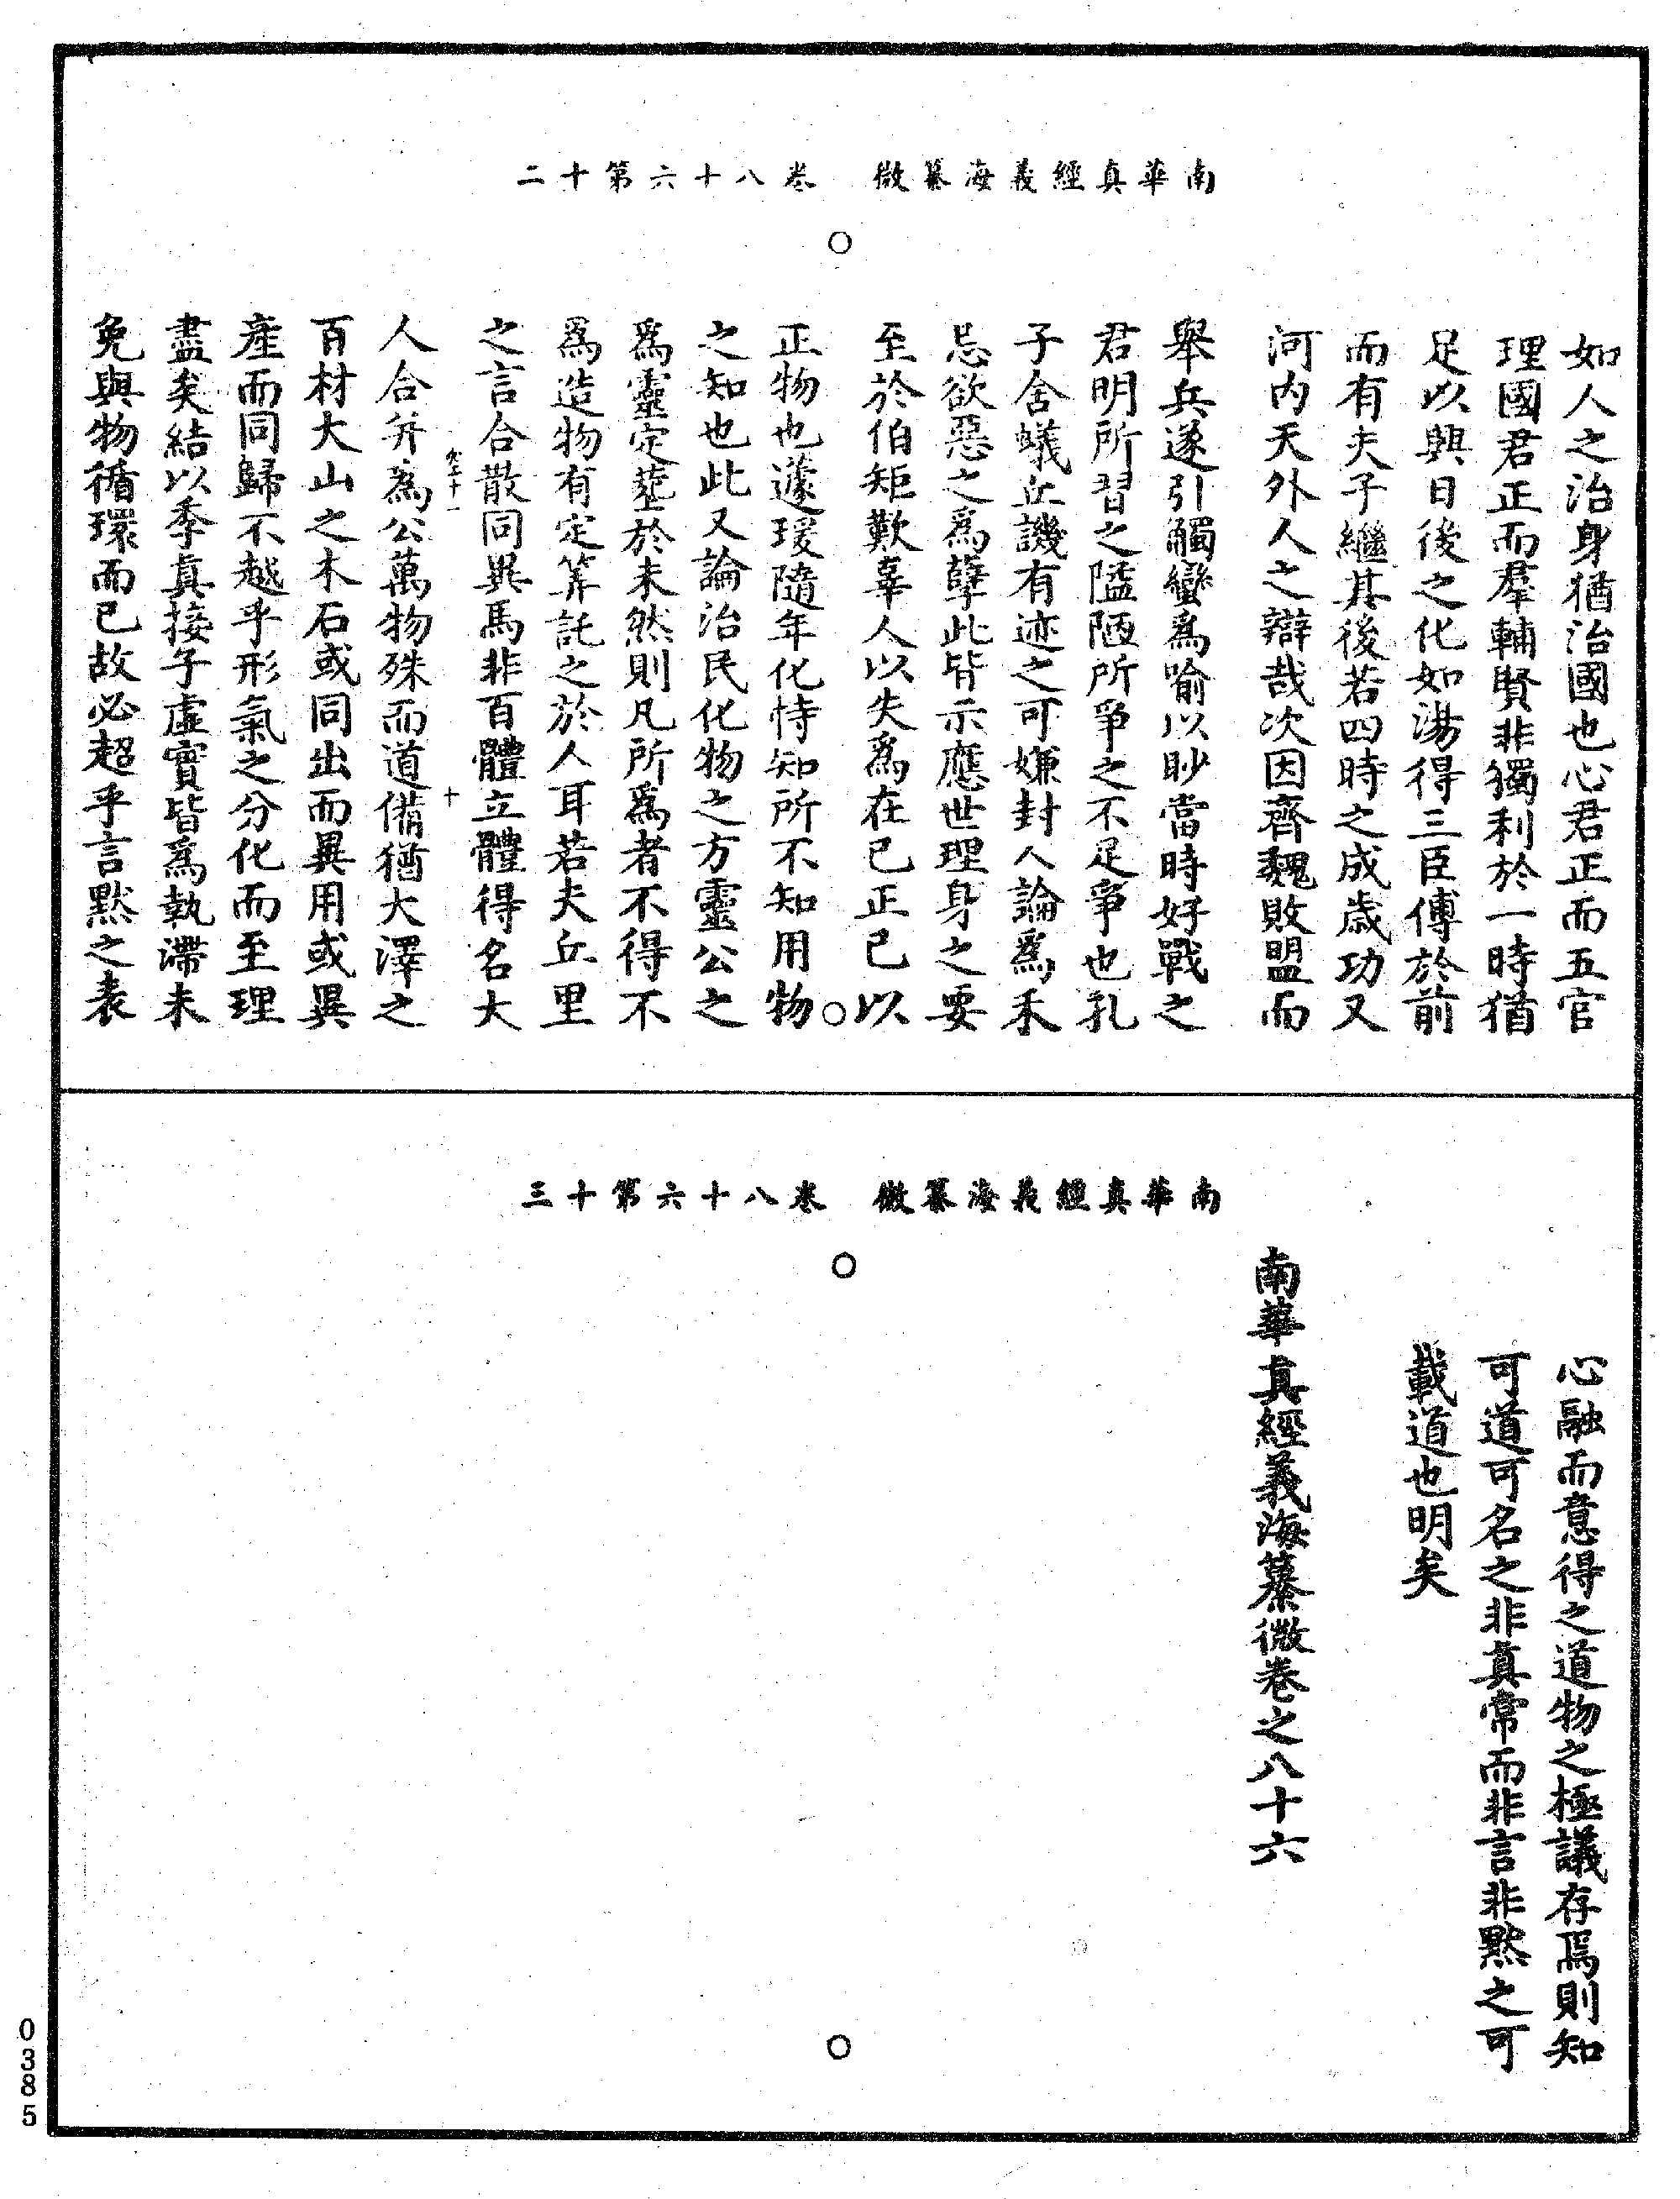 南華真經義海纂微　卷八十六第十二
如人之治身猶治國也心君正而五官
理國君正而羣輔賢非獨利於一時猶
足以與日後之化如湯得三臣傅於前
而有夫子繼其後若四時之成歲功又
河內天外人之辯哉次因齊魏敗盟而
舉兵遂引觸蠻爲喻以眇當時好戰之
君明所習之隘陋所爭之不足爭也孔
子舍蟻丘譏有迹之可嫌封人論爲禾
忌欲惡之爲孽此皆示應世理身之要
至於伯矩歎辜人以失爲在己正己以
正物也蘧瑗隨年化恃知所不知用物
之知也此又論治民化物之方靈公之
爲靈定塟於未然則凡所爲者不得不
爲造物有定筭託之於人耳若夫丘里
之言合散同異馬非百體立體得名大
人合并爲公萬物殊而道備猶大澤之
百材大山之木石或同出而異用或異
産而同歸不越乎形氣之分化而至理
盡矣結以季真接子虛實皆爲執滯未
免與物循環而已故必超乎言默之表
十
南華真經義海纂微　卷八十六第十三
心融而意得之道物之極議存焉則知
可道可名之非真常而非言非默之可
載道也明矣
南華真經義海纂微卷之八十六
0385